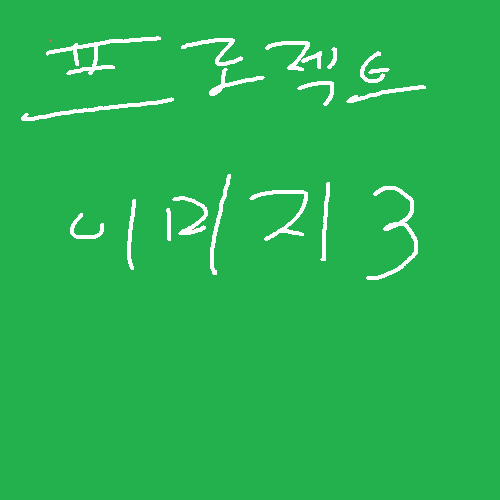 프로젝트
이미지3